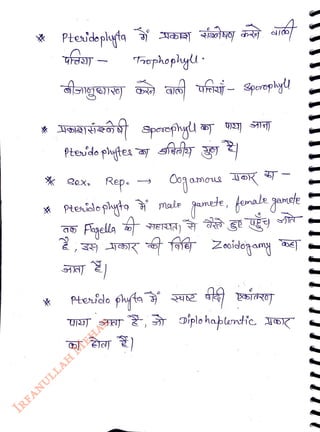 * Pteridophyta में प्रकाश संश्लेषण करने वाली
पत्तियां - Trophophyll.
बीजाणुधारण करने वाली पत्तियाँ - Sporophyll
* प्रकाशसंश्लेषी Sporophyll का पाया जाना
Pteridophytes का अद्वितीय गुण है।
* Sex. Rep. → Oogamous प्रकार का -
* Pteridophyta में male gamete, female gamete
तक Flagella की सहायता से तैरते हुए पहुँच जाते
है, इस प्रकार की विधि Zooidogamy कहा
जाता है।
* Pteridophyta में स्पष्ट पीढ़ी एकांतरण
पाया जाता है, जो Diplohaplontic प्रकार
का होता है।
IRFANULLAH